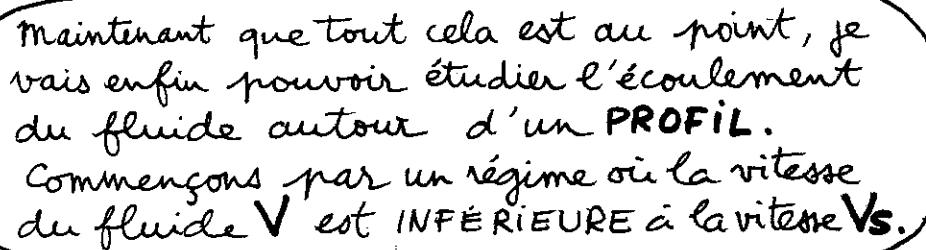 Maintenant que tout cela est au point, je
vais enfin pouvoir étudier l'écoulement
du fluide autour d'un PROFiL.
Commençons par un régime où la vitesse
du fluide V est INFÉRiEURE à la vitesse Vs.